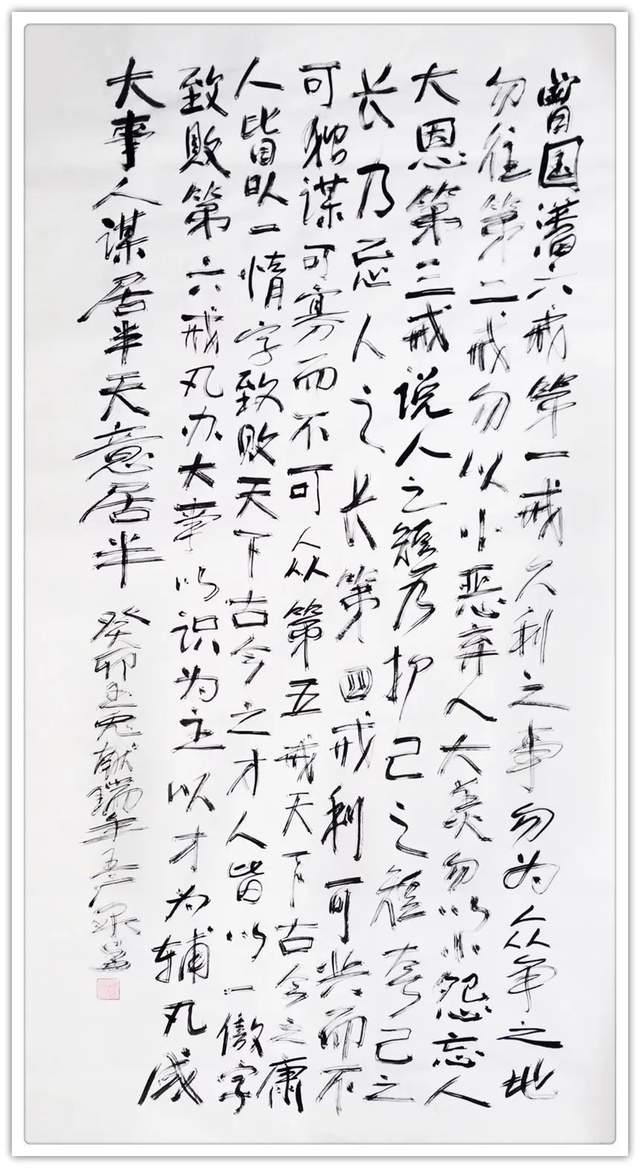 曾国藩六戒第一戒久利之事勿为众争之地
勿往第二戒勿以小恶弃人大美勿以小怨忘人
大恩第三戒说人之短乃护己之短夸己之
长乃忌人之长第四戒利可共而不
可独谋可寡而不可众第五戒天下古今之庸
人皆以一惰字致败天下古今之才人皆以一傲字
致败第六戒凡办大事以识为主以才为辅凡成
大事人谋居半天意居半 癸卯玉兔献瑞年